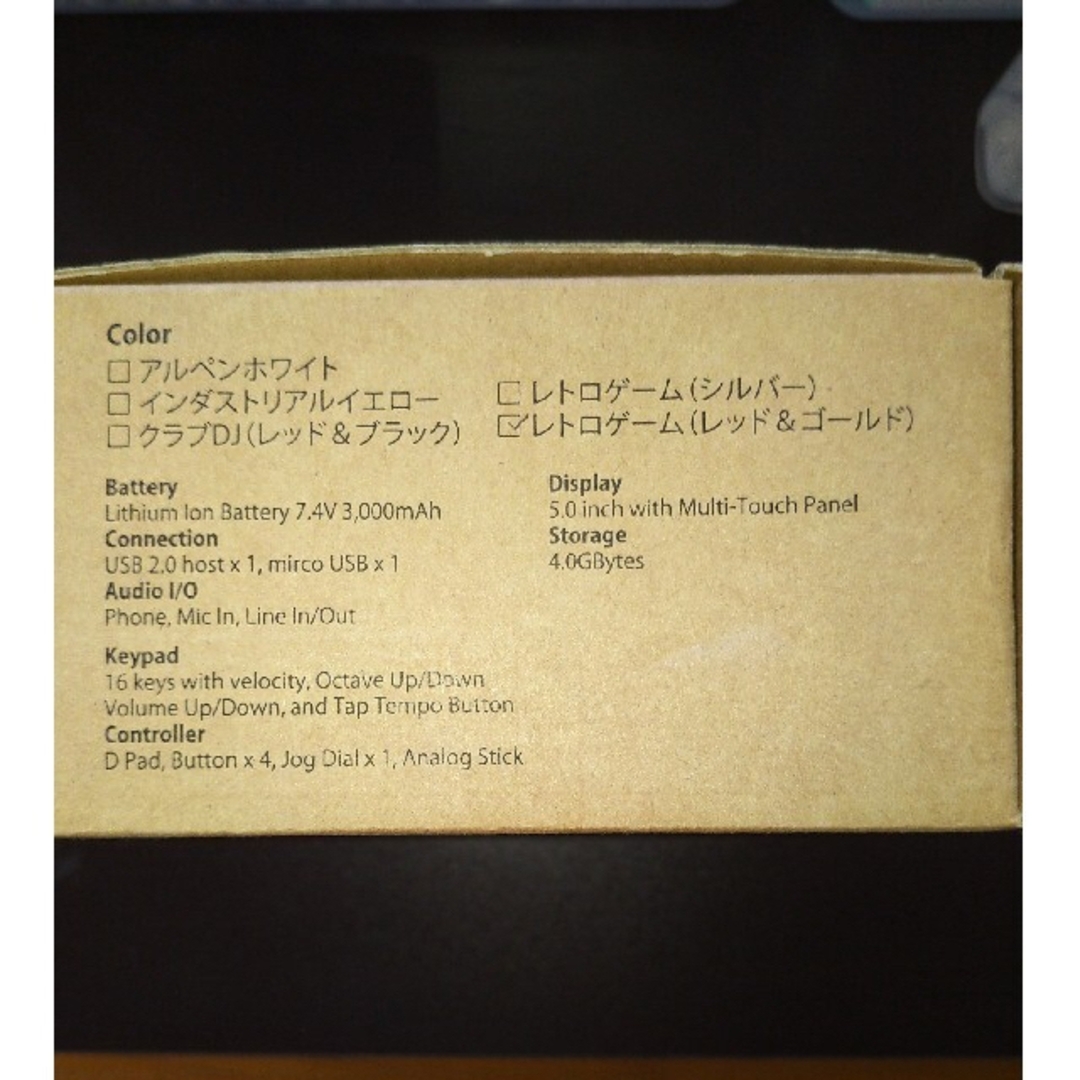 Color
□ アルペンホワイト
□ インダストリアルイエロー
□ クラブDJ(レッド&ブラック)
□ レトロゲーム(シルバー)
☑ レトロゲーム(レッド&ゴールド)
Battery
Lithium Ion Battery 7.4V 3,000mAh
Connection
USB 2.0 host x 1, mirco USB x 1
Audio I/O
Phone, Mic In, Line In/Out
Keypad
16 keys with velocity, Octave Up/Down
Volume Up/Down, and Tap Tempo Button
Controller
D Pad, Button x 4, Jog Dial x 1, Analog Stick
Display
5.0 inch with Multi-Touch Panel
Storage
4.0GBytes